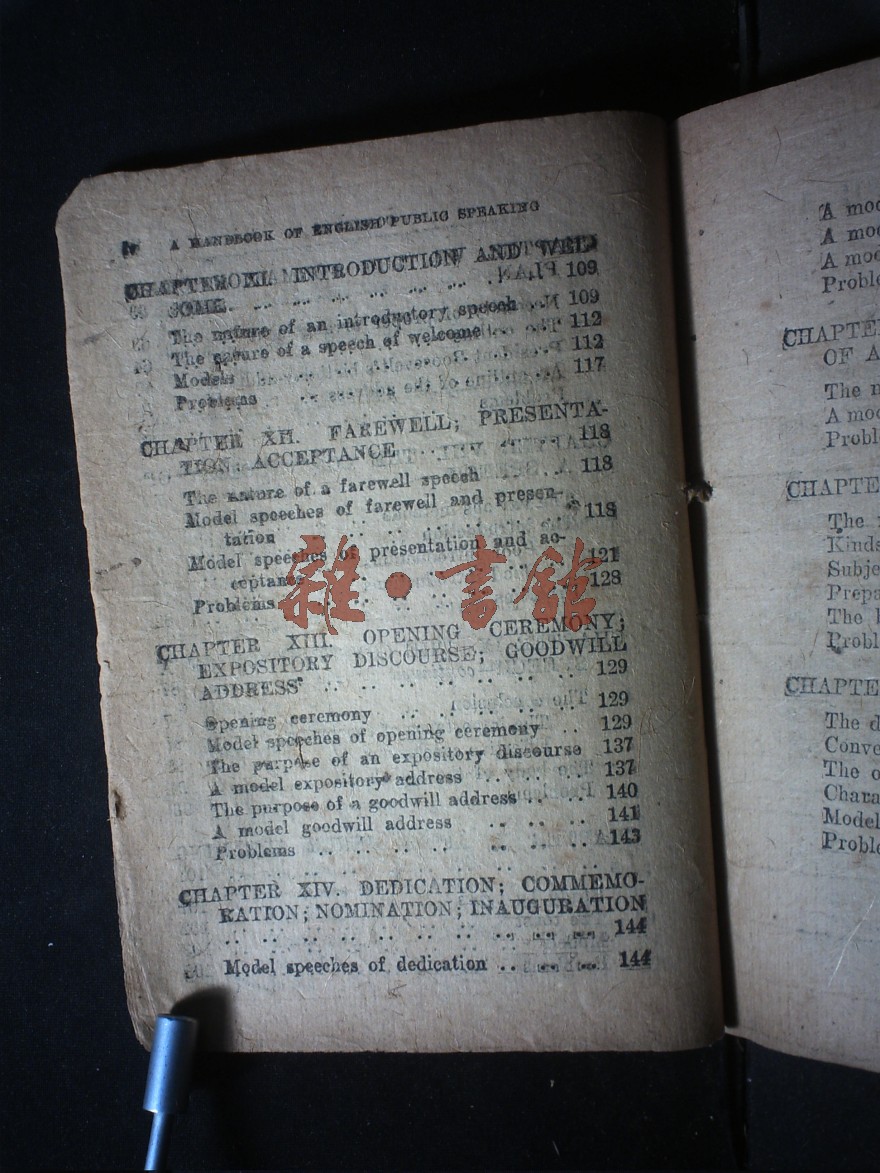 iv A HANDBOOK OF ENGLISH PUBLIC SPEAKING
CHAPTER XI. INTRODUCTION AND WEL-
COME .. .. .. .. .. .. .. 109
The nature of an introductory speech .. 109
The nature of a speech of welcome .. 112
Models .. .. .. 112
Problems .. .. .. 117
CHAPTER XII. FAREWELL; PRESENTA-
TION; ACCEPTANCE .. .. .. 118
The nature of a farewell speech .. .. 118
Model speeches of farewell and presen-
tation .. .. .. .. .. .. 118
Model speeches of presentation and ac-
ceptance .. .. .. .. .. 121
Problems .. .. .. .. .. 128
雜·書舘
CHAPTER XIII. OPENING CEREMONY;
EXPOSITORY DISCOURSE; GOODWILL
ADDRESS .. .. .. .. .. .. .. 129
Opening ceremony .. .. .. .. .. 129
Model speeches of opening ceremony .. 129
The purpose of an expository discourse 137
A model expository address .. .. .. 137
The purpose of a goodwill address .. .. 140
A model goodwill address .. .. .. 141
Problems .. .. .. .. .. .. .. 143
CHAPTER XIV. DEDICATION; COMMEMO-
RATION; NOMINATION; INAUGURATION
.. .. .. .. .. .. .. .. .. .. 144
Model speeches of dedication .. .. .. 144
A mod
A mod
A mod
Proble
CHAPTE
OF A
The n
A mod
Proble
CHAPTE
The
Kinds
Subje
Prepa
The
Probl
CHAPTE
The d
Conve
The o
Chara
Model
Proble